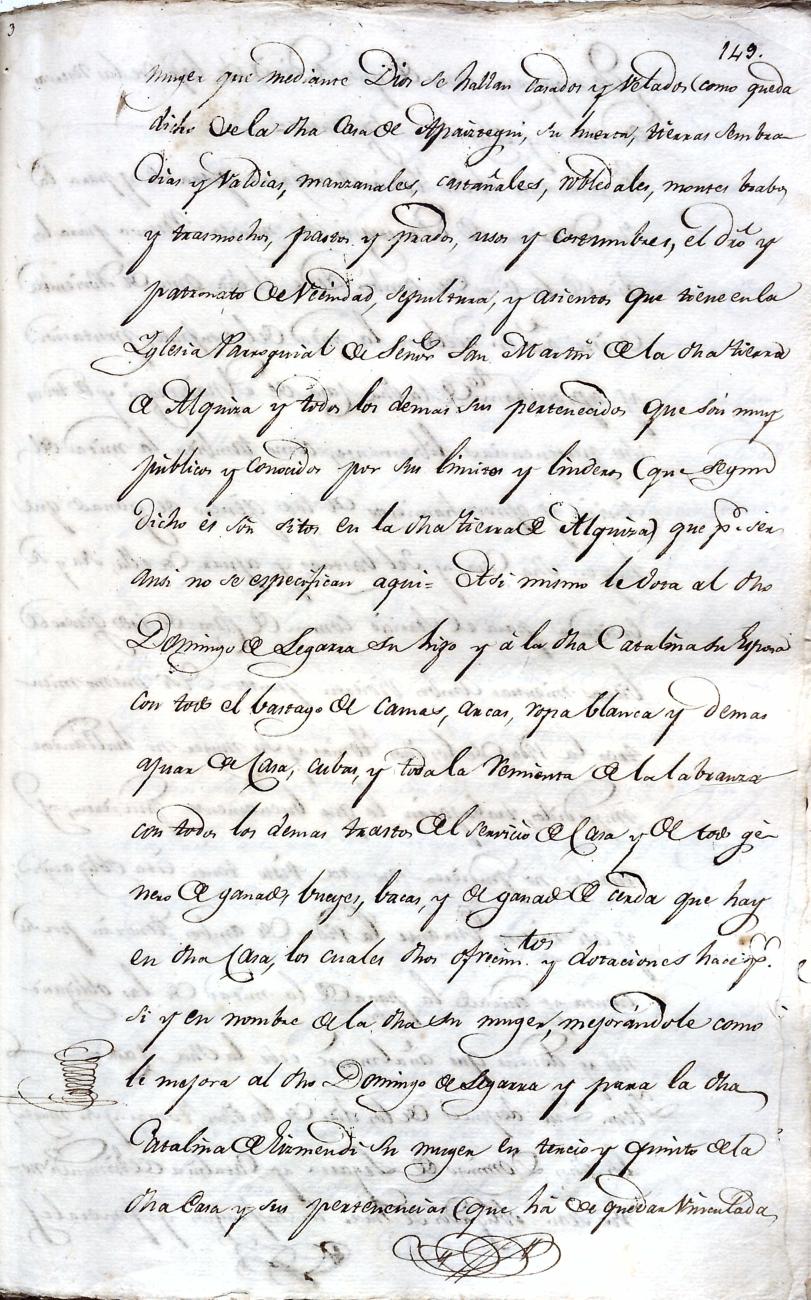 3
149.
muger que mediante Dios se hallan casados y velados (como queda
dicho de la dha Casa de Apaiztegui, su huerta, tierras sembra-
dias y valdias, manzanales, castañales, robledales, montes brabos
y trasmochos, pastos y prados, usos y costumbres, el dro y
patronato de Vecindad, sepultura, y asientos que tiene en la
Yglesia Parroquial de Señor San Martin de la dha tierra
de Alquiza y todos los demas sus pertenecidos que són muy
públicos y conocidos por sus limites y linderos (que segun
dicho es són sitos en la dha tierra de Alquiza) que pr. ser
ansi no se especifican aqui= Asi mismo le dota al dho
Domingo de Legarra su hijo y á la dha Catalina su Esposa
con todo el bastago de camas, arcas, ropa blanca y demas
ajuar de Casa, cubas, y toda la remienta de la labranza
con todos los demas trastos del servicio de Casa y de todo gé-
nero de ganados bueyes, bacas, y de ganado de cerda que hay
en dha Casa, los cuales dhos ofrecimtos. y dotaciones hace pr.
si y en nombre de la dha su muger, mejorándole como
le mejora al dho Domingo de Legarra y para la dha
Catalina de Yrizmendi su muger en tercio y quinto de la
dha Casa y sus pertenencias (que há de quedar vinculada